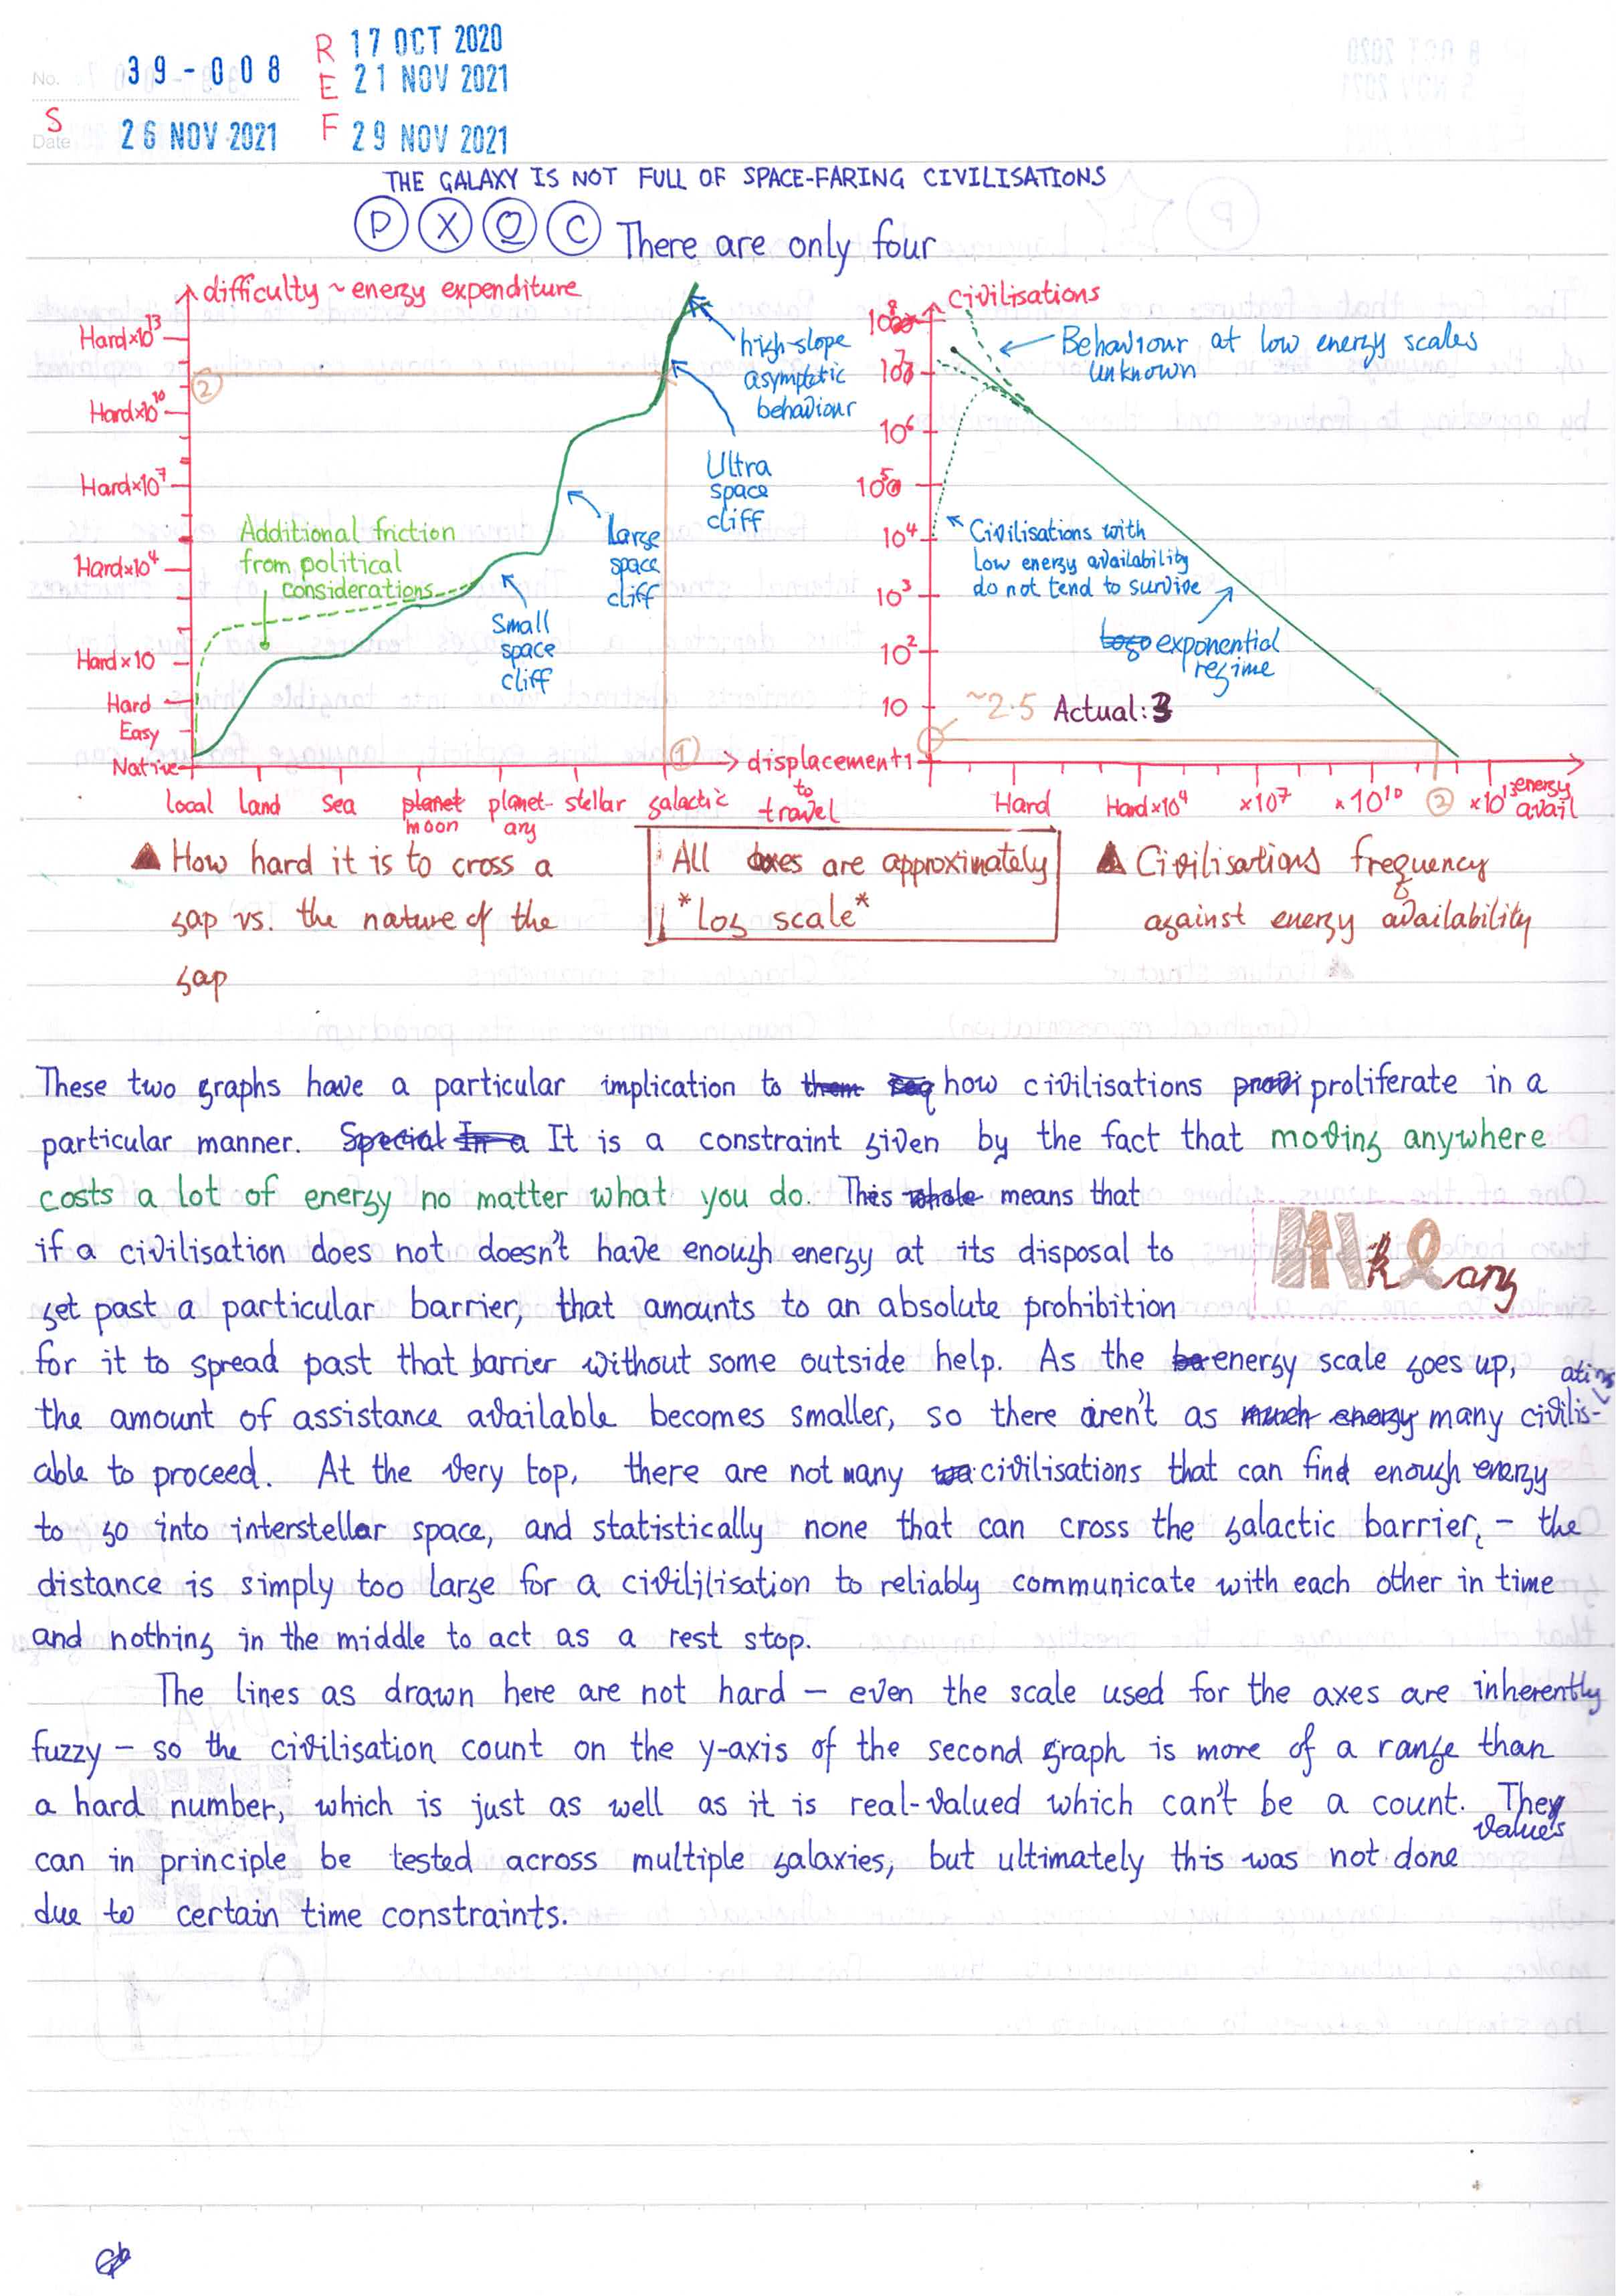 No. 39-008
R 17 OCT 2020
E 21 NOV 2021
S
Date 26 NOV 2021
F 29 NOV 2021
THE GALAXY IS NOT FULL OF SPACE-FARING CIVILISATIONS
P X Q C There are only four
difficulty ~ energy expenditure
Hard×10^13
Hard×10^10
Hard×10^7
Hard×10^4
Hard×10
Hard
Easy
Native
2
Additional friction
from political
considerations
Small
space
cliff
Large
space
cliff
Ultra
space
cliff
high-slope
asymptotic
behaviour
1
displacement
to
travel
local land sea planet planet- stellar galactic
moon ary
civilisations
10^8
10^7
10^6
10^5
10^4
10^3
10^2
10
1
Behaviour at low energy scales
unknown
Civilisations with
low energy availability
do not tend to survive
exponential
regime
~2.5 Actual: 3
Hard Hard×10^4 ×10^7 ×10^10 2 ×10^13 energy
avail
▲ How hard it is to cross a
gap vs. the nature of the
gap
All axes are approximately
*Log scale*
▲ Civilisations frequency
against energy availability
These two graphs have a particular implication to them how civilisations proliferate in a
particular manner. Special In a It is a constraint given by the fact that moving anywhere
costs a lot of energy no matter what you do. This whole means that
if a civilisation does not doesn't have enough energy at its disposal to
get past a particular barrier, that amounts to an absolute prohibition
for it to spread past that barrier without some outside help. As the be energy scale goes up,
the amount of assistance available becomes smaller, so there aren't as much energy many civilis-ations
able to proceed. At the very top, there are not many civilisations that can find enough energy
to go into interstellar space, and statistically none that can cross the galactic barrier, – the
distance is simply too large for a civililisation to reliably communicate with each other in time
and nothing in the middle to act as a rest stop.
The lines as drawn here are not hard – even the scale used for the axes are inherently
fuzzy – so the civilisation count on the y-axis of the second graph is more of a range than
a hard number, which is just as well as it is real-valued which can't be a count. The values
can in principle be tested across multiple galaxies, but ultimately this was not done
due to certain time constraints.